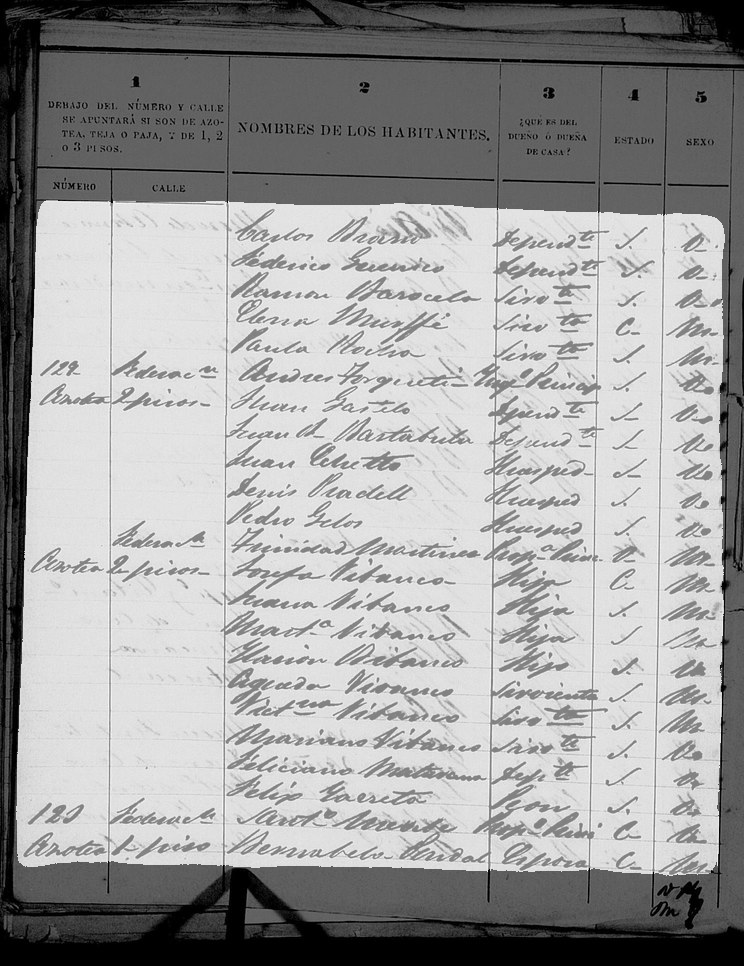 1 2 3 4 5
DEBAJO DEL NÚMERO Y CALLE
SE APUNTARÁ SI SON DE AZO-
TEA, TEJA O PAJA, Y DE 1, 2
O 3 PISOS.
NOMBRES DE LOS HABITANTES.
¿QUE ES DEL
DUEÑO Ó DUEÑA
DE CASA?
ESTADO
SEXO
NÚMERO CALLE
Carlos Bravo Depend.te S. V.
Federico Depend.te S. V.
Ramon Barocela Sirv.te S. V.
Elena Murffé Sirv.ta C. M.
Paula Rocha Sirv.te S. M.
129 Federac.n Andres Inq.o Princip S. V.
Azotea 2 pisos Juan Gastelo Depend.te S. V.
Juan B. Bartabula Depend.te S. V.
Juan Huesped S. V.
Denis Pradell Huesped S. V.
Pedro Gelos Huesped S. V.
Federac.n Trinidad Martinez Prop.a Prin V. M.
Azotea 2 pisos Josefa Vibanco Hija C. M.
Juana Vibanco Hija S. M.
Mart.a Vibanco Hija S. M.
Ylarion Vibanco Hijo S. V.
Agueda Vivanco Sirvienta S. M.
Vict.na Vibanco Sirv.ta S. M.
Mariano Vibanco Sirv.te S. V.
Feliciano Dep.te S. V.
Felix Garreta Peon S. V.
Federac.n Sant.o Prop.o C. V.
Azotea 1 piso Bernabela Vidal Esposa C. M.